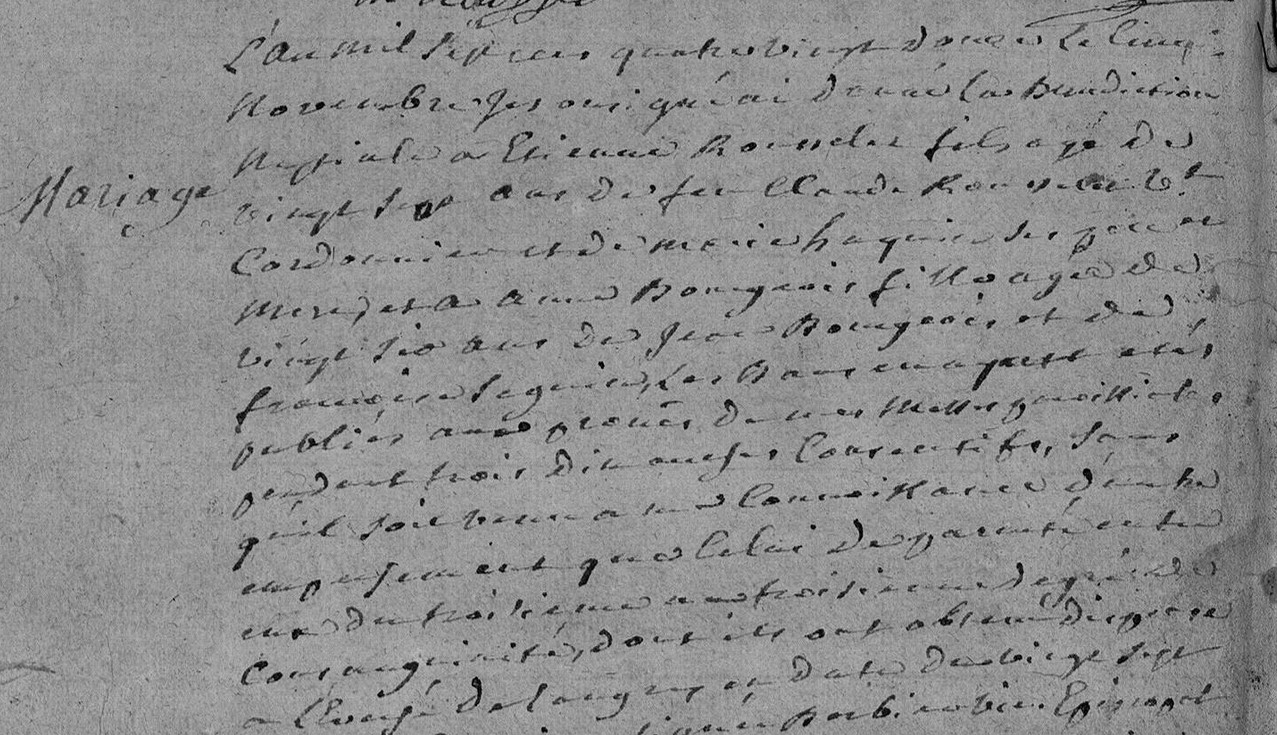 L'an mil sept cens quatre vingt douze le cinq
Novembre Je soussigné ai donné la Bénédiction
Nuptiale a Etienne Rousselet fils agé de
Mariage
vingt sept ans de feu Claude Rousselet vt
Cordonnier et de marie haquin ses père et
mere, et a anne Bourgeois fille agée de
vingt six ans de Jean Bourgeois et de
francoise Seguin, les Bans en ayant etés
publiés aux prônes de nos Messes paroissiales
pendant trois dimanches Consecutifs, sans
quil soit venu a ma Connoissance d'autre
empechement que celui de parenté entre
eux du troisieme au troisieme degré de
Consanguinité, dont ils ont obtenu dispense
a l'Evéché de langres en date du vingt sept
signée Episcopal